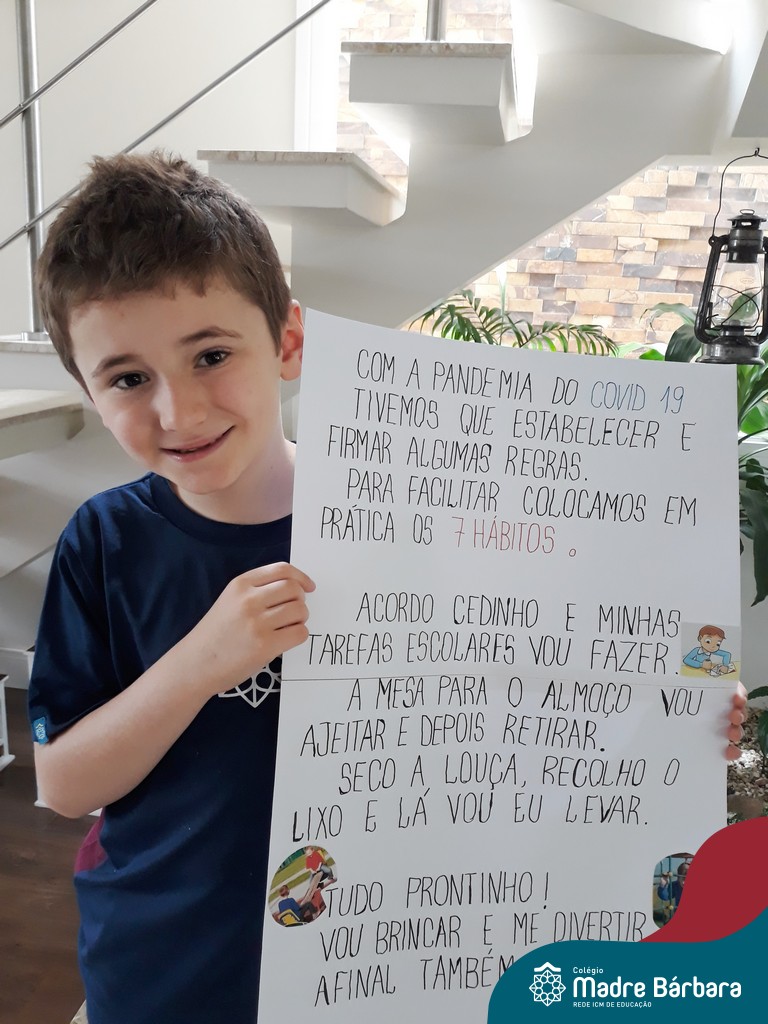 COM A PANDEMIA DO COVID 19
TIVEMOS QUE ESTABELECER E
FIRMAR ALGUMAS REGRAS.
PARA FACILITAR COLOCAMOS EM
PRÁTICA OS 7 HÁBITOS.
ACORDO CEDINHO E MINHAS
TAREFAS ESCOLARES VOU FAZER.
A MESA PARA O ALMOÇO VOU
AJEITAR E DEPOIS RETIRAR.
SECO A LOUÇA, RECOLHO O
LIXO E LÁ VOU EU LEVAR.
TUDO PRONTINHO!
VOU BRINCAR E ME DIVERTIR
AFINAL TAMBÉM
Colégio
Madre Bárbara
REDE ICM DE EDUCAÇÃO